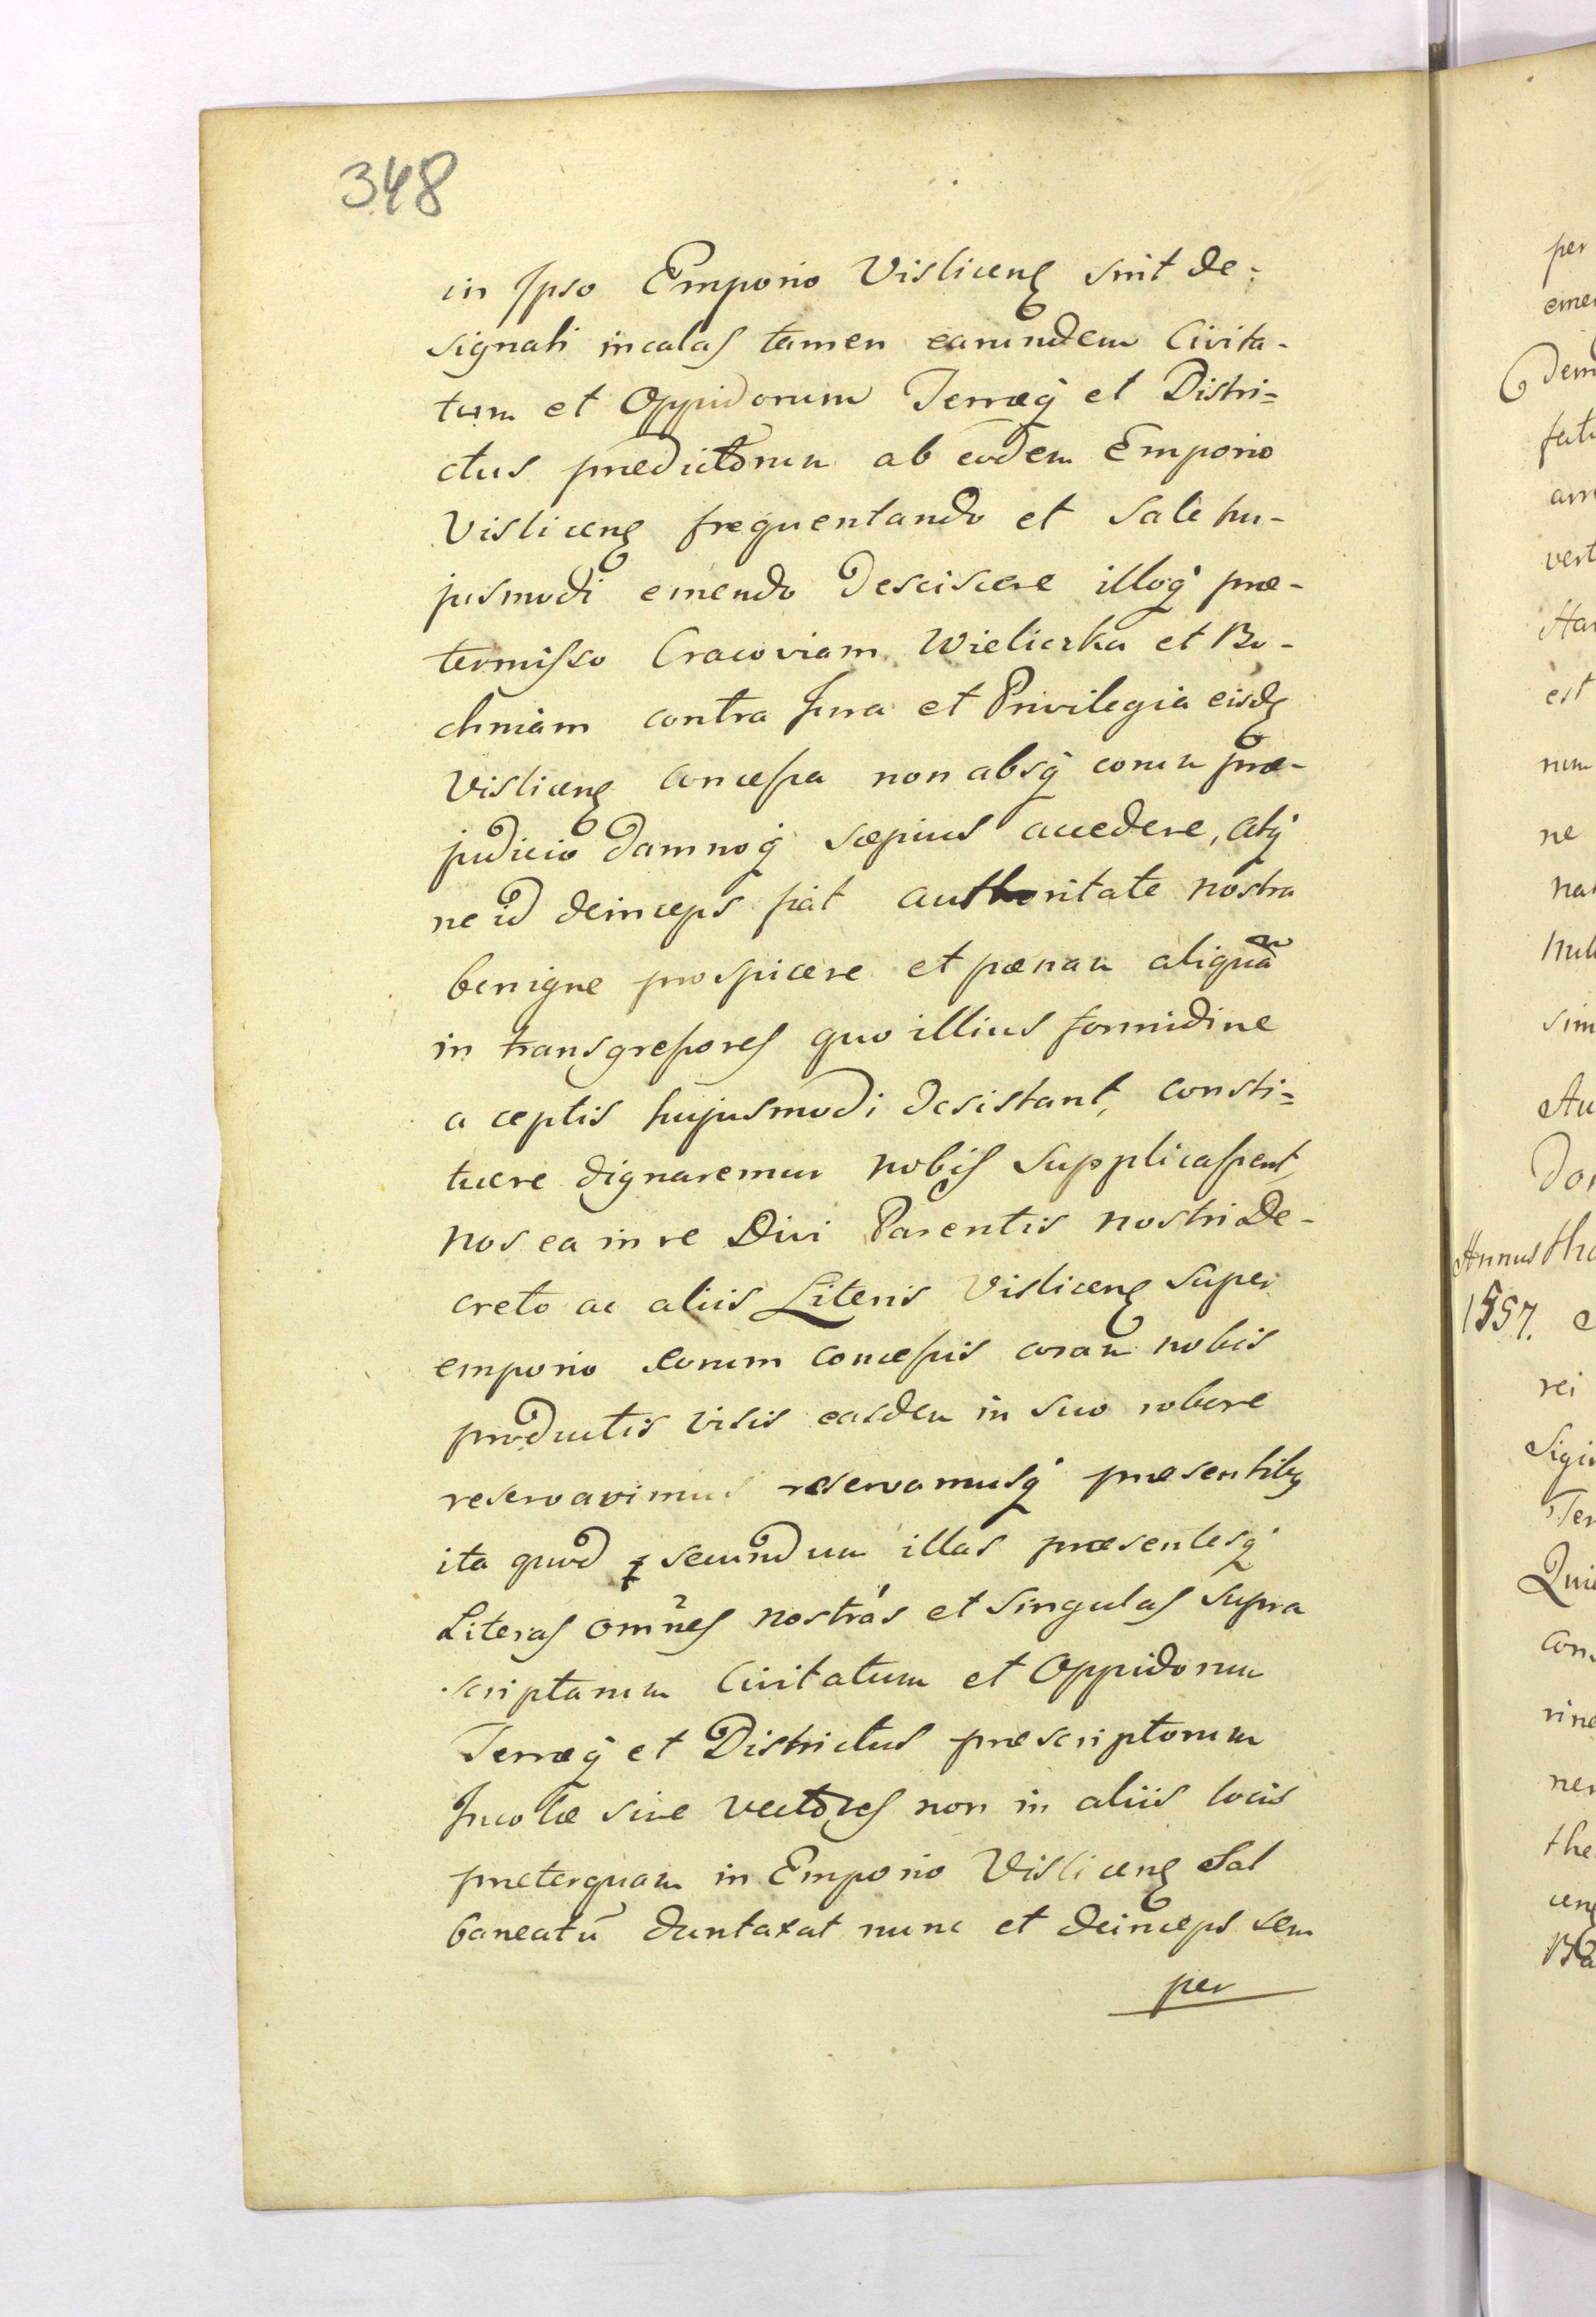 348
in Ipso Emporio Visliceng sint de-
signati incolas tamen earundem Civita-
tum et Oppidorum Terræq et Distri=
ctus prædictorum ab eodem Emporio
Visliceng frequentando et Sale hu-
jusmodi emendo desciscere illoq præ-
termisso Cracoviam Wieliczka et Bo-
chniam contra Jura et Privilegia eisdg
Visliceng concessa non absq eorum præ-
judicio damnoq sæpius accedere, atq
ne id deinceps fiat authoritate nostra
benigne prospicere et pænam aliquã
in transgressores quo illius formidine
a ceptis hujusmodi desistant, consti=
tuere dignaremur nobis supplicassent,
nos ea in re Divi Parentis nostri De-
creto ac aliis Literis Visliceng super
emporio eorum concessis coram nobis
productis visis easdem in suo robore
reservavimus reservamusq præsentibg
ita quod secundum illas præsentesq
Literas omnes nostras et singulas supra
scriptarum Civitatum et Oppidorum
Terræq et Districtus præscriptorum
Incolæ sive vectores non in aliis locis
præterquam in Emporio Visliceng Sal
baneatũ duntaxat nunc et deinceps sem
per
per
est
ne
Annus
1557.
rei